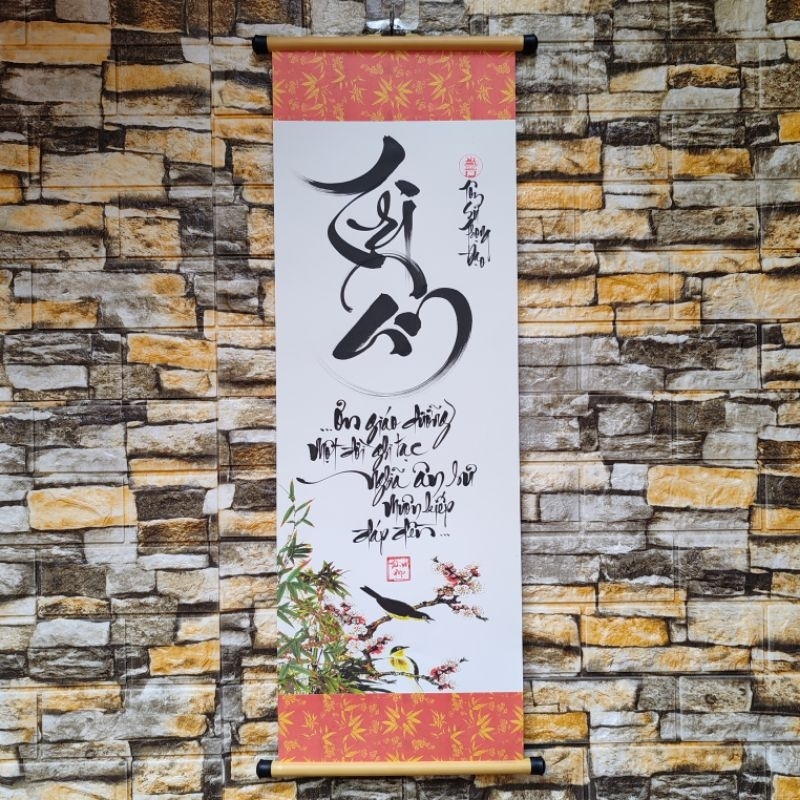 Tri
Ân
Tôn
Sư
Trọng
Đạo
...Ơn giáo dưỡng
một đời ghi tạc
Nghĩa ân sư
muôn kiếp
đáp đền...